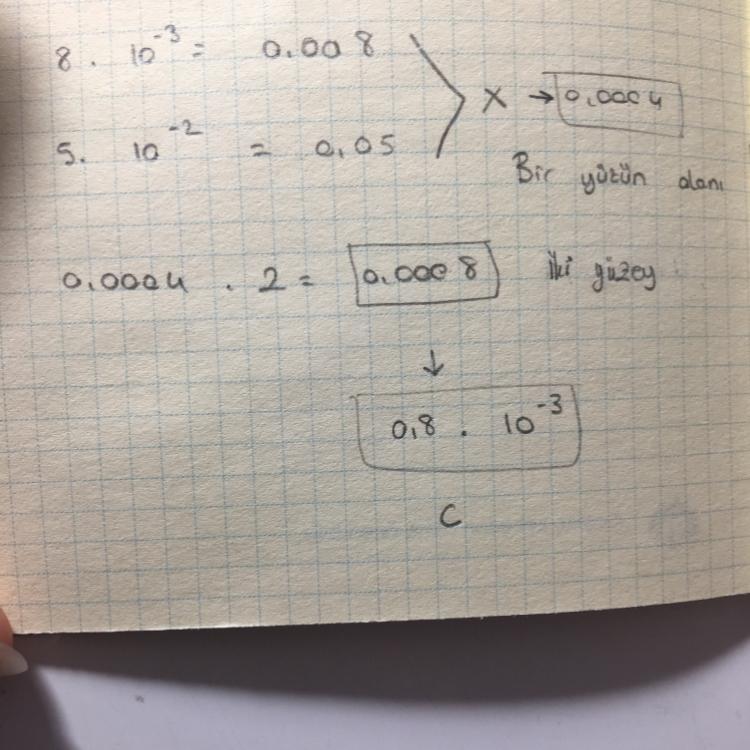 8 . 10⁻³ = 0.008
5. 10⁻² = 0,05
X → 0,0004
Bir yüzün alanı
0,0004 . 2 = 0,0008 İki yüzey
↓
0,8 . 10⁻³
C